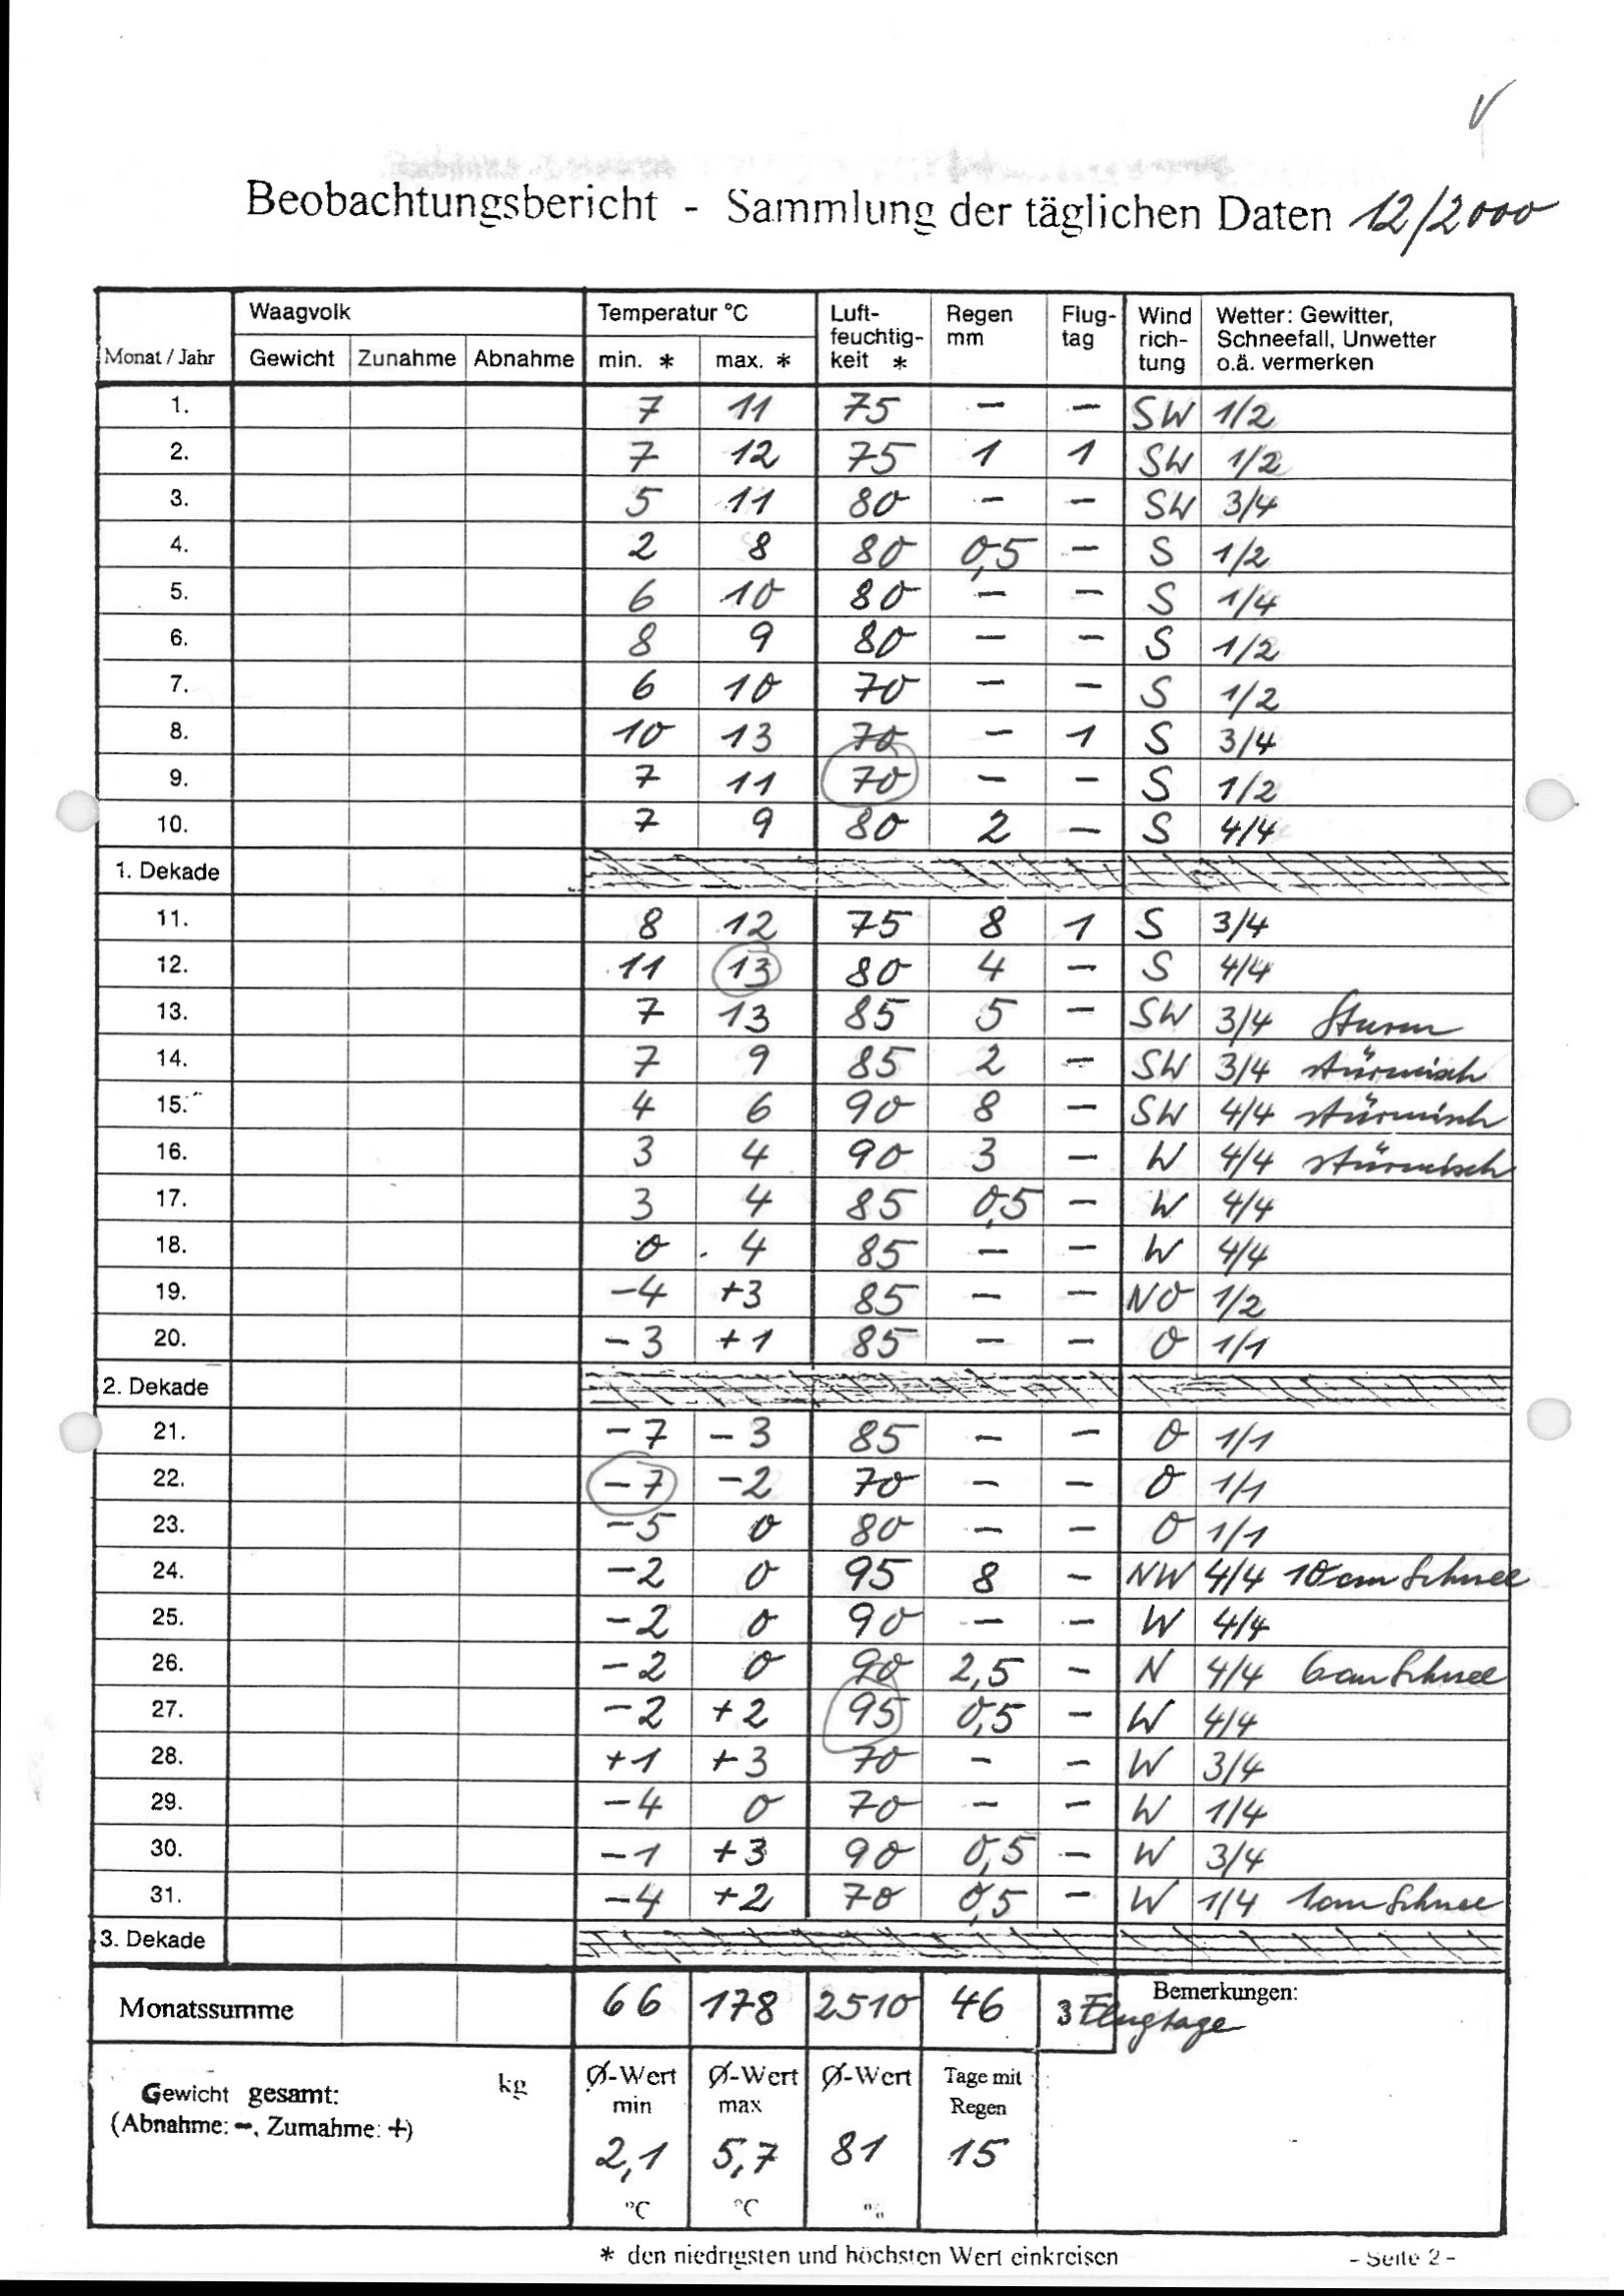 V
Beobachtungsbericht - Sammlung der täglichen Daten 12/2000
Monat / Jahr Waagvolk Temperatur °C Luft-feuchtig-keit * Regen mm Flug-tag Wind rich-tung Wetter: Gewitter, Schneefall, Unwetter o.ä. vermerken
Gewicht Zunahme Abnahme min. * max. *
1. 7 11 75 – – SW 1/2
2. 7 12 75 1 1 SW 1/2
3. 5 11 80 – – SW 3/4
4. 2 8 80 0,5 – S 1/2
5. 6 10 80 – – S 1/4
6. 8 9 80 – – S 1/2
7. 6 10 70 – – S 1/2
8. 10 13 70 – 1 S 3/4
9. 7 11 70 – – S 1/2
10. 7 9 80 2 – S 4/4
1. Dekade
11. 8 12 75 8 1 S 3/4
12. 11 13 80 4 – S 4/4
13. 7 13 85 5 – SW 3/4 Sturm
14. 7 9 85 2 – SW 3/4 stürmisch
15. 4 6 90 8 – SW 4/4 stürmisch
16. 3 4 90 3 – W 4/4 stürmisch
17. 3 4 85 0,5 – W 4/4
18. 0 4 85 – – W 4/4
19. -4 +3 85 – – NO 1/2
20. -3 +1 85 – – O 1/1
2. Dekade
21. -7 -3 85 – – O 1/1
22. -7 -2 70 – – O 1/1
23. -5 0 80 – – O 1/1
24. -2 0 95 8 – NW 4/4 10cm Schnee
25. -2 0 90 – – W 4/4
26. -2 0 90 2,5 – N 4/4 6cm Schnee
27. -2 +2 95 0,5 – W 4/4
28. +1 +3 70 – – W 3/4
29. -4 0 70 – – W 1/4
30. -1 +3 90 0,5 – W 3/4
31. -4 +2 70 0,5 – W 1/4 1cm Schnee
3. Dekade
Monatssumme 66 178 2510 46 3 Flugtage Bemerkungen:
Gewicht gesamt: kg Ø-Wert min Ø-Wert max Ø-Wert Tage mit Regen
(Abnahme: -, Zumahme: +)
2,1 5,7 81 15
°C °C %
* den niedrigsten und höchsten Wert einkreisen - Seite 2 -